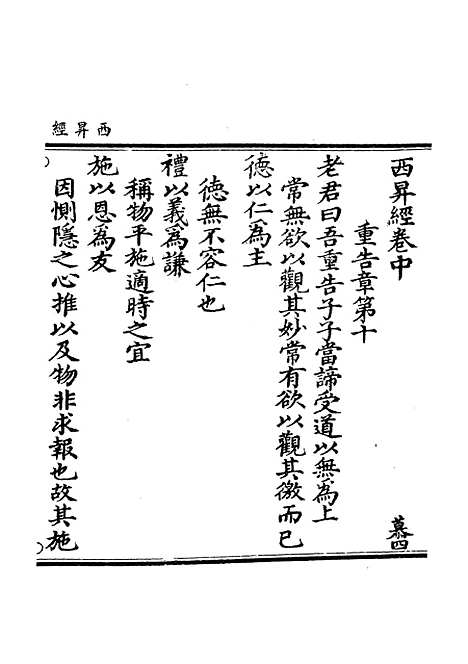 西昇經
西昇經卷中
慕四
重告章第十
老君曰吾重告子子當諦受道以無為上
常無欲以觀其妙常有欲以觀其徼而已
德以仁為主
德無不容仁也
禮以義為謙
稱物平施適時之宜
施以恩為友
因惻隱之心推以及物非求報也故其施